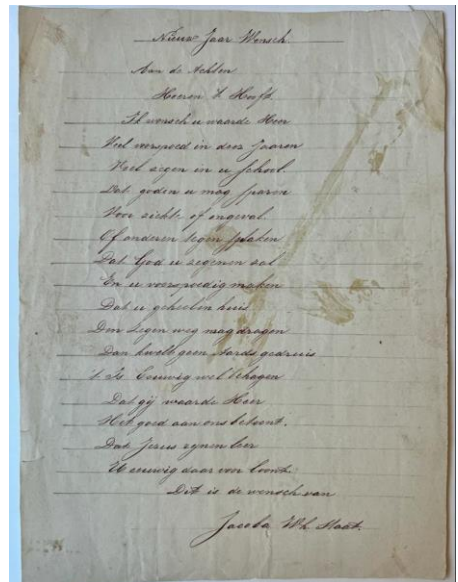 Nieuw Jaar Wensch
Aan de Achten
Heeren
Ik wensch u waarde Heer
Veel voorspoed in deez Jaaren
Veel zegen in u School
Dat goden u mag sparen
Voor ziekte of ongeval
Of anderen tegen spaken
Dat God u zegenen zal
En u voorspoedig maken
Dat u geheelen huis
Den zegen weg mag dragen
Dan kwelt geen Aards gedruis
't Is Eeuwig wel behagen
Dat gij waarde Heer
Het goed aan ons betoont.
Dat Jezus zynen leer
U eeuwig daar voor loont.
Dit is de wensch van
Jacoba